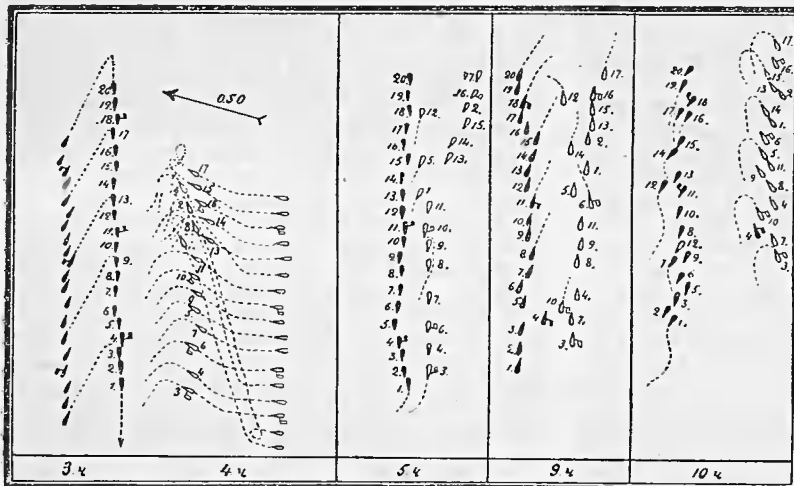 20.
19.
18.
17
16.
15.
14.
13.
12.
11.
10.
9.
8.
7.
6.
5.
4.
3.
2.
1.
0.50
17
14
13
11
10
7
6
4
3
20.
19.
18.
17.
16.
15.
14.
13.
12.
11.
10.
9.
8.
7.
6.
5.
4.
3.
2.
1.
17
16.
12. 2.
15.
14.
5. 13.
1
11.
10.
9.
8.
7.
6.
4.
3.
20
19
18
17
16
15
14
13.
12
11.
10.
9.
8
7.
6
5.
3.
2.
1.
17.
12 16
15.
13.
2.
14
1.
5.
6.
11.
9.
8.
4.
10
4 7.
3.
20.
19.
18
17 16.
15.
14
13
12 11.
10.
8.
12.
7 9.
6
5.
3.
2 1.
17.
16.
15.
13 14
1.
6
5.
11.
9 8.
4.
10
4 7.
3.
3. ч 4 ч 5 ч 9 ч 10 ч